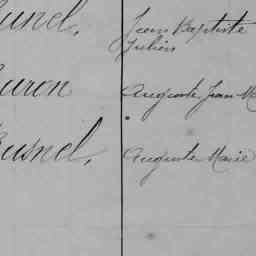 Jean Baptiste
Julien
uron Auguste Jean M
Busnel, Auguste Marie